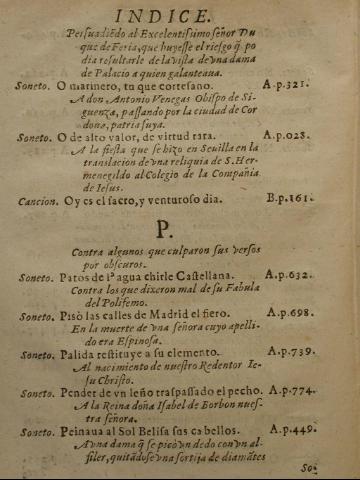 INDICE.
Persuadiẽdo al Excelentissimo señor Du
que de Feria, que huyesse el riesgo q̃ po
dia resultarle de la vista de vna dama
de Palacio a quien galanteaua.
Soneto. O marinero, tu que cortesano. A.p.321.
A don Antonio Venegas Obispo de Si-
guenza, passando por la ciudad de Cor
doua, patria suya.
Soneto. O de alto valor, de virtud rara. A.p.028.
A la fiesta que se hizo en Seuilla en la
translacion de vna reliquia de S. Her-
menegildo al Colegio de la Compañia
de Iesus.
Cancion. Oy es el sacro, y venturoso dia. B.p.161.
P.
Contra algunos que culparon sus versos
por obscuros.
Soneto. Patos de la agua chirle Castellana. A.p.632.
Contra los que dixeron mal de su Fabula
del Polifemo.
Soneto. Pisò las calles de Madrid el fiero. A.p.698.
En la muerte de vna señora cuyo apelli-
do era Espinosa.
Soneto. Palida restituye a su elemento. A.p.739.
Al nacimiento de nuestro Redentor Ie-
su Christo.
Soneto. Pender de vn leño traspassado el pecho. A.p.774.
A la Reina doña Isabel de Borbon nues-
tra señora.
Soneto. Peinaua al Sol Belisa sus cabellos. A.p.449.
A vna dama q̃ se picò vn dedo con vn al-
filer, quitãdose vna sortija de diamãtes
So-